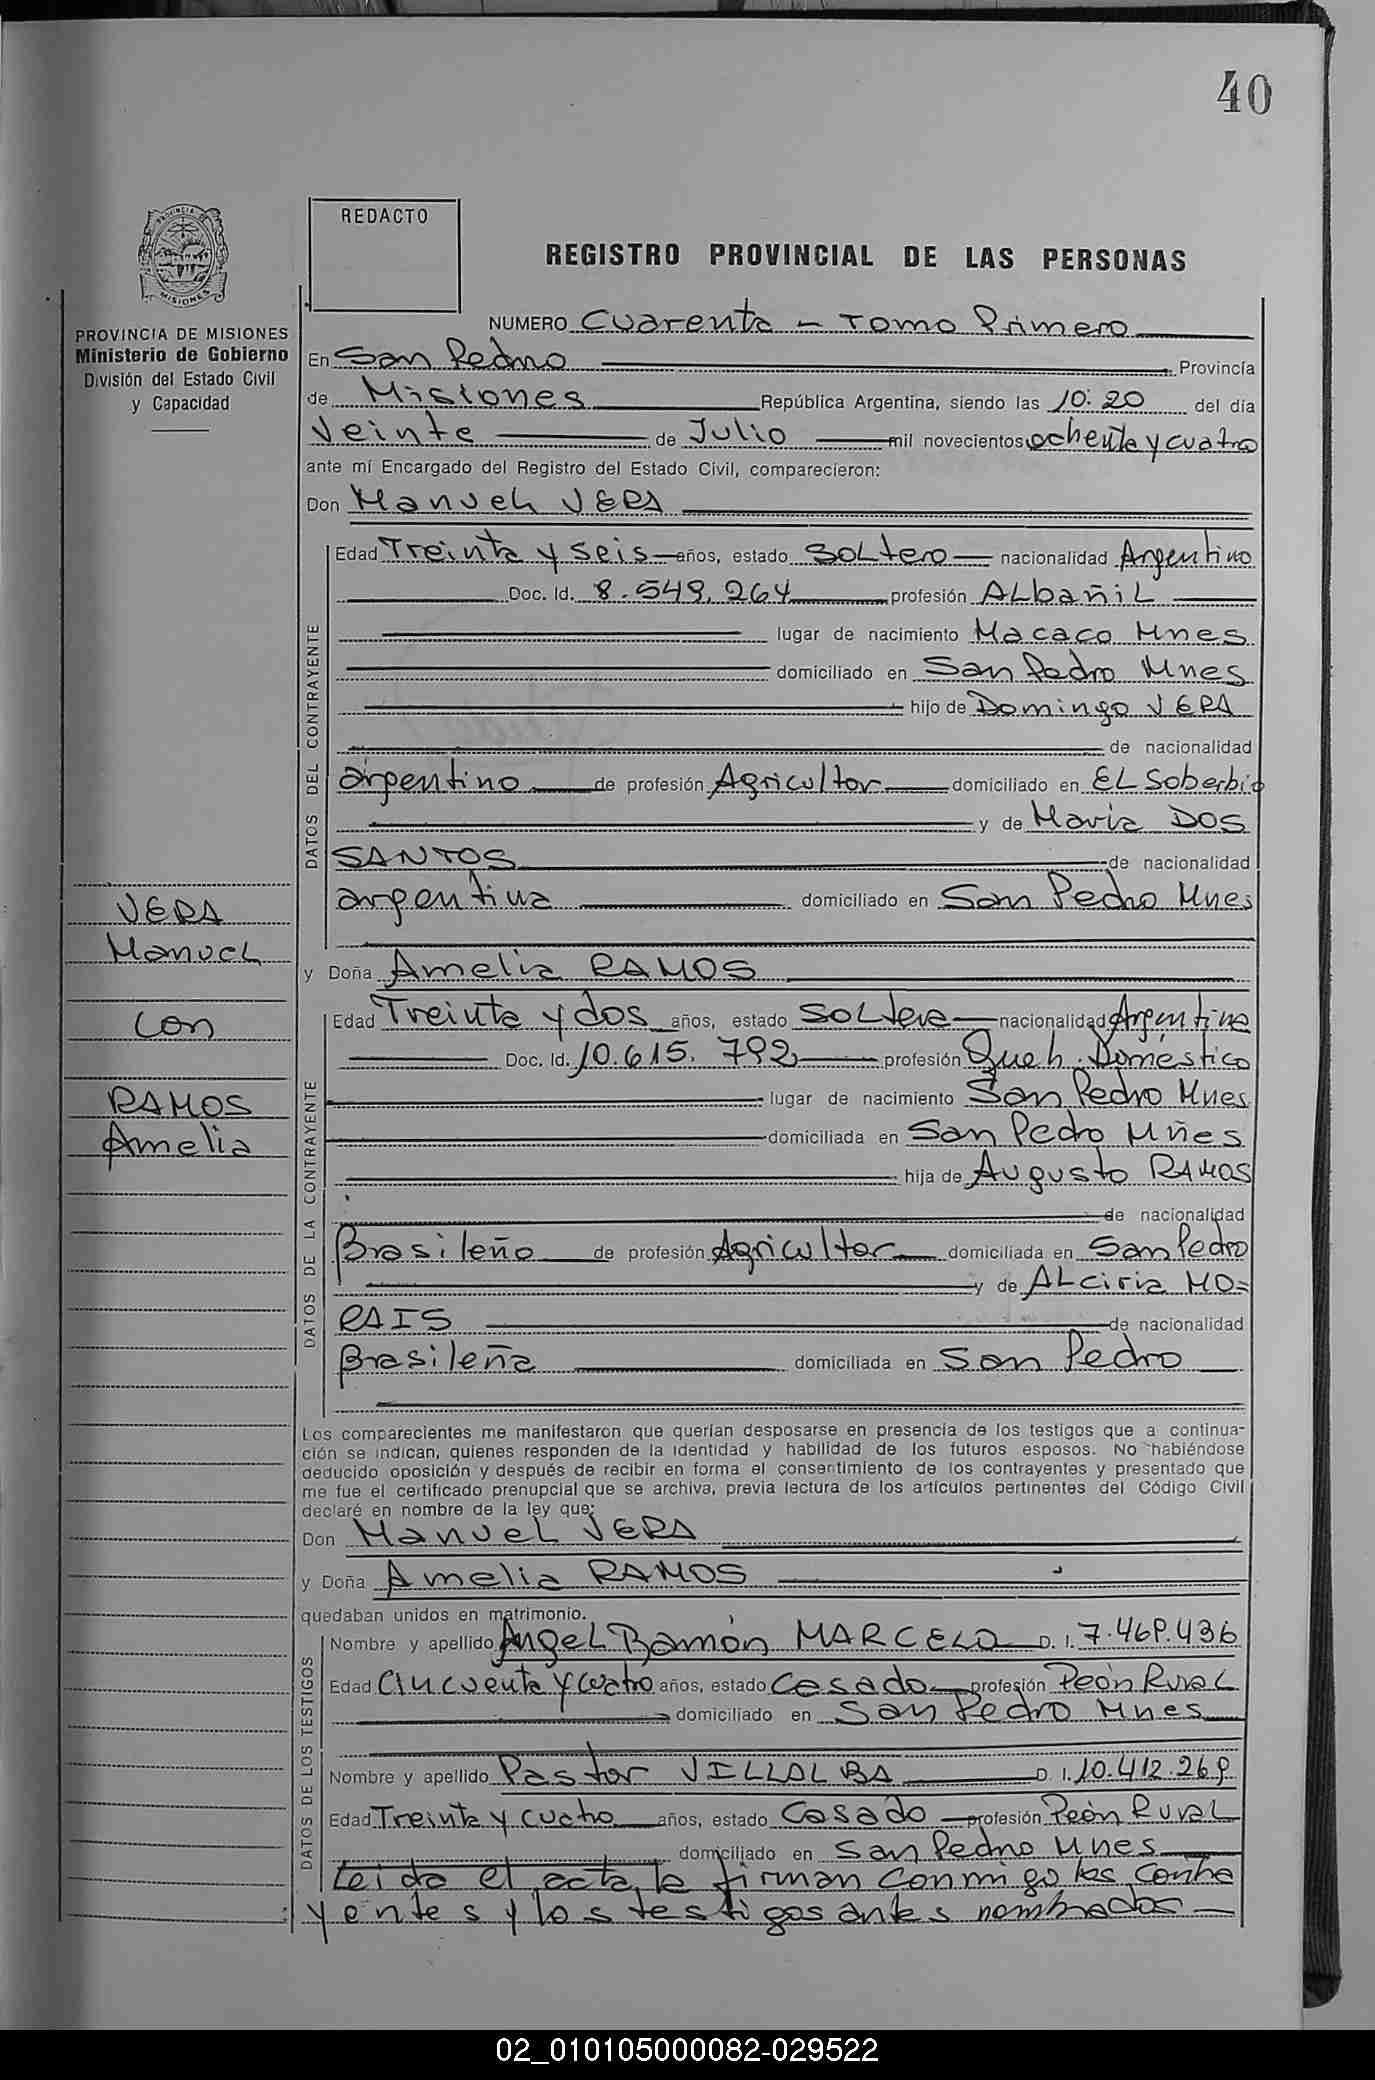 40
REDACTO
REGISTRO PROVINCIAL DE LAS PERSONAS
PROVINCIA DE MISIONES
Ministerio de Gobierno
División del Estado Civil
y Capacidad
NUMERO Cuarenta - Tomo Primero
En San Pedro Provincia
de Misiones República Argentina, siendo las 10:20 del día
Veinte de Julio mil novecientos ochenta y cuatro
ante mí Encargado del Registro del Estado Civil, comparecieron:
Don Manuel VERA
DATOS DEL CONTRAYENTE
Edad Treinta y seis años, estado Soltero nacionalidad Argentino
Doc. Id. 8.549.264 profesión Albañil
lugar de nacimiento Macaco Mnes
domiciliado en San Pedro Mnes
hijo de Domingo VERA
de nacionalidad
argentino de profesión Agricultor domiciliado en El Soberbio
y de Maria DOS
SANTOS de nacionalidad
argentina domiciliado en San Pedro Mnes
VERA
Manuel
con
RAMOS
Amelia
y Doña Amelia RAMOS
DATOS DE LA CONTRAYENTE
Edad Treinta y dos años, estado Soltera nacionalidad Argentina
Doc. Id. 10.615.792 profesión Queh. Doméstico
lugar de nacimiento San Pedro Mnes
domiciliada en San Pedro Mñes
hija de Augusto RAMOS
de nacionalidad
Brasileño de profesión Agricultor domiciliada en San Pedro
y de Alciria MO=
RAIS de nacionalidad
Brasileña domiciliada en San Pedro
Los comparecientes me manifestaron que querían desposarse en presencia de los testigos que a continua-
ción se indican, quienes responden de la identidad y habilidad de los futuros esposos. No habiéndose
deducido oposición y después de recibir en forma el consentimiento de los contrayentes y presentado que
me fue el certificado prenupcial que se archiva, previa lectura de los artículos pertinentes del Código Civil
declaré en nombre de la ley que:
Don Manuel VERA
y Doña Amelia RAMOS
quedaban unidos en matrimonio.
DATOS DE LOS TESTIGOS
Nombre y apellido Angel Ramón MARCELO D. I. 7.469.436
Edad Cincuenta y cuatro años, estado Casado profesión Peón Rural
domiciliado en San Pedro Mnes
Nombre y apellido Pastor VILLALBA D. I. 10.412.269
Edad Treinta y cuatro años, estado Casado profesión Peón Rural
domiciliado en San Pedro Mnes
Leida el acta la firman conmigo los contra
yentes y los testigos antes nombrados
02_010105000082-029522